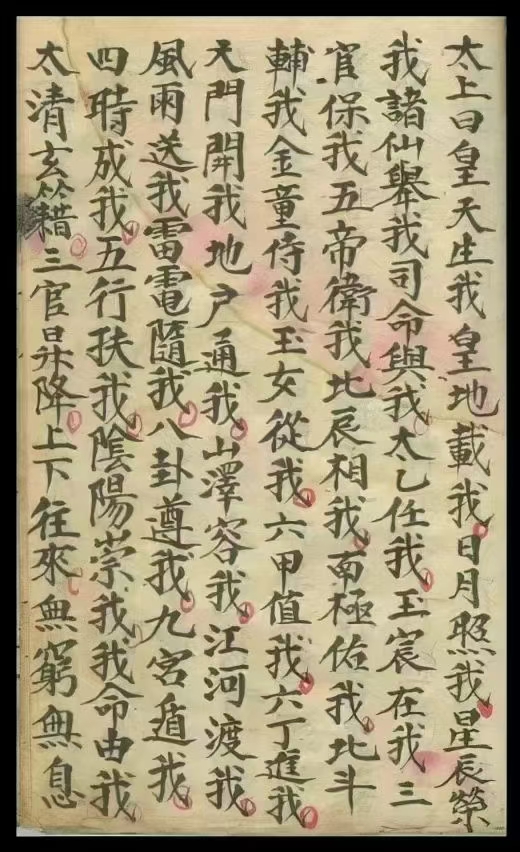 太上曰皇天生我皇地載我日月照我星辰榮
我諸仙舉我司命與我太乙任我玉宸在我三
官保我五帝衛我北辰相我南極佑我北斗
輔我金童侍我玉女從我六甲值我六丁進我
天門開我地户通我山澤容我江河渡我
風雨送我雷電隨我八卦遵我九宮遁我
四時成我五行扶我陰陽崇我我命由我
太清玄籍三官昇降上下往來無窮無息